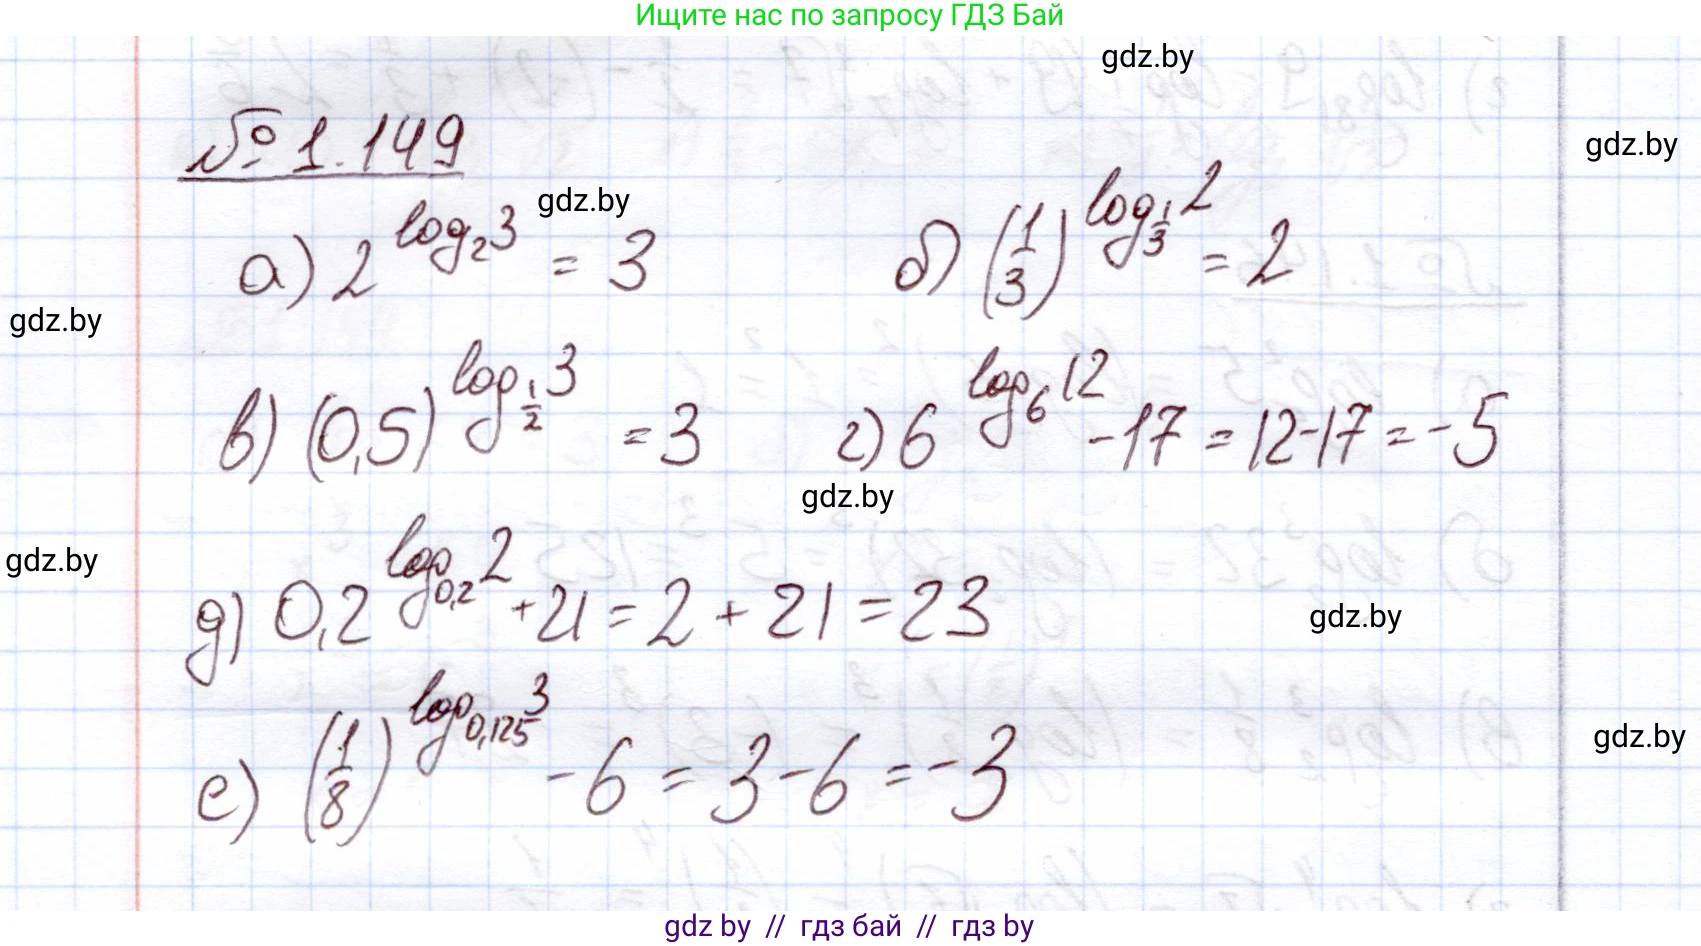 Ищите нас по запросу ГДЗ Бай
gdz.by
№ 1.149
gdz.by
gdz.by
а) 2^{log_2 3} = 3
б) (1/3)^{log_{1/3} 2} = 2
gdz.by
в) (0,5)^{log_{1/2} 3} = 3
г) 6^{log_6 12} - 17 = 12 - 17 = -5
gdz.by
gdz.by
д) 0,2^{log_{0,2} 2} + 21 = 2 + 21 = 23
gdz.by
е) (1/8)^{log_{0,125} 3} - 6 = 3 - 6 = -3
gdz.by
gdz by // гдз бай // гдз by